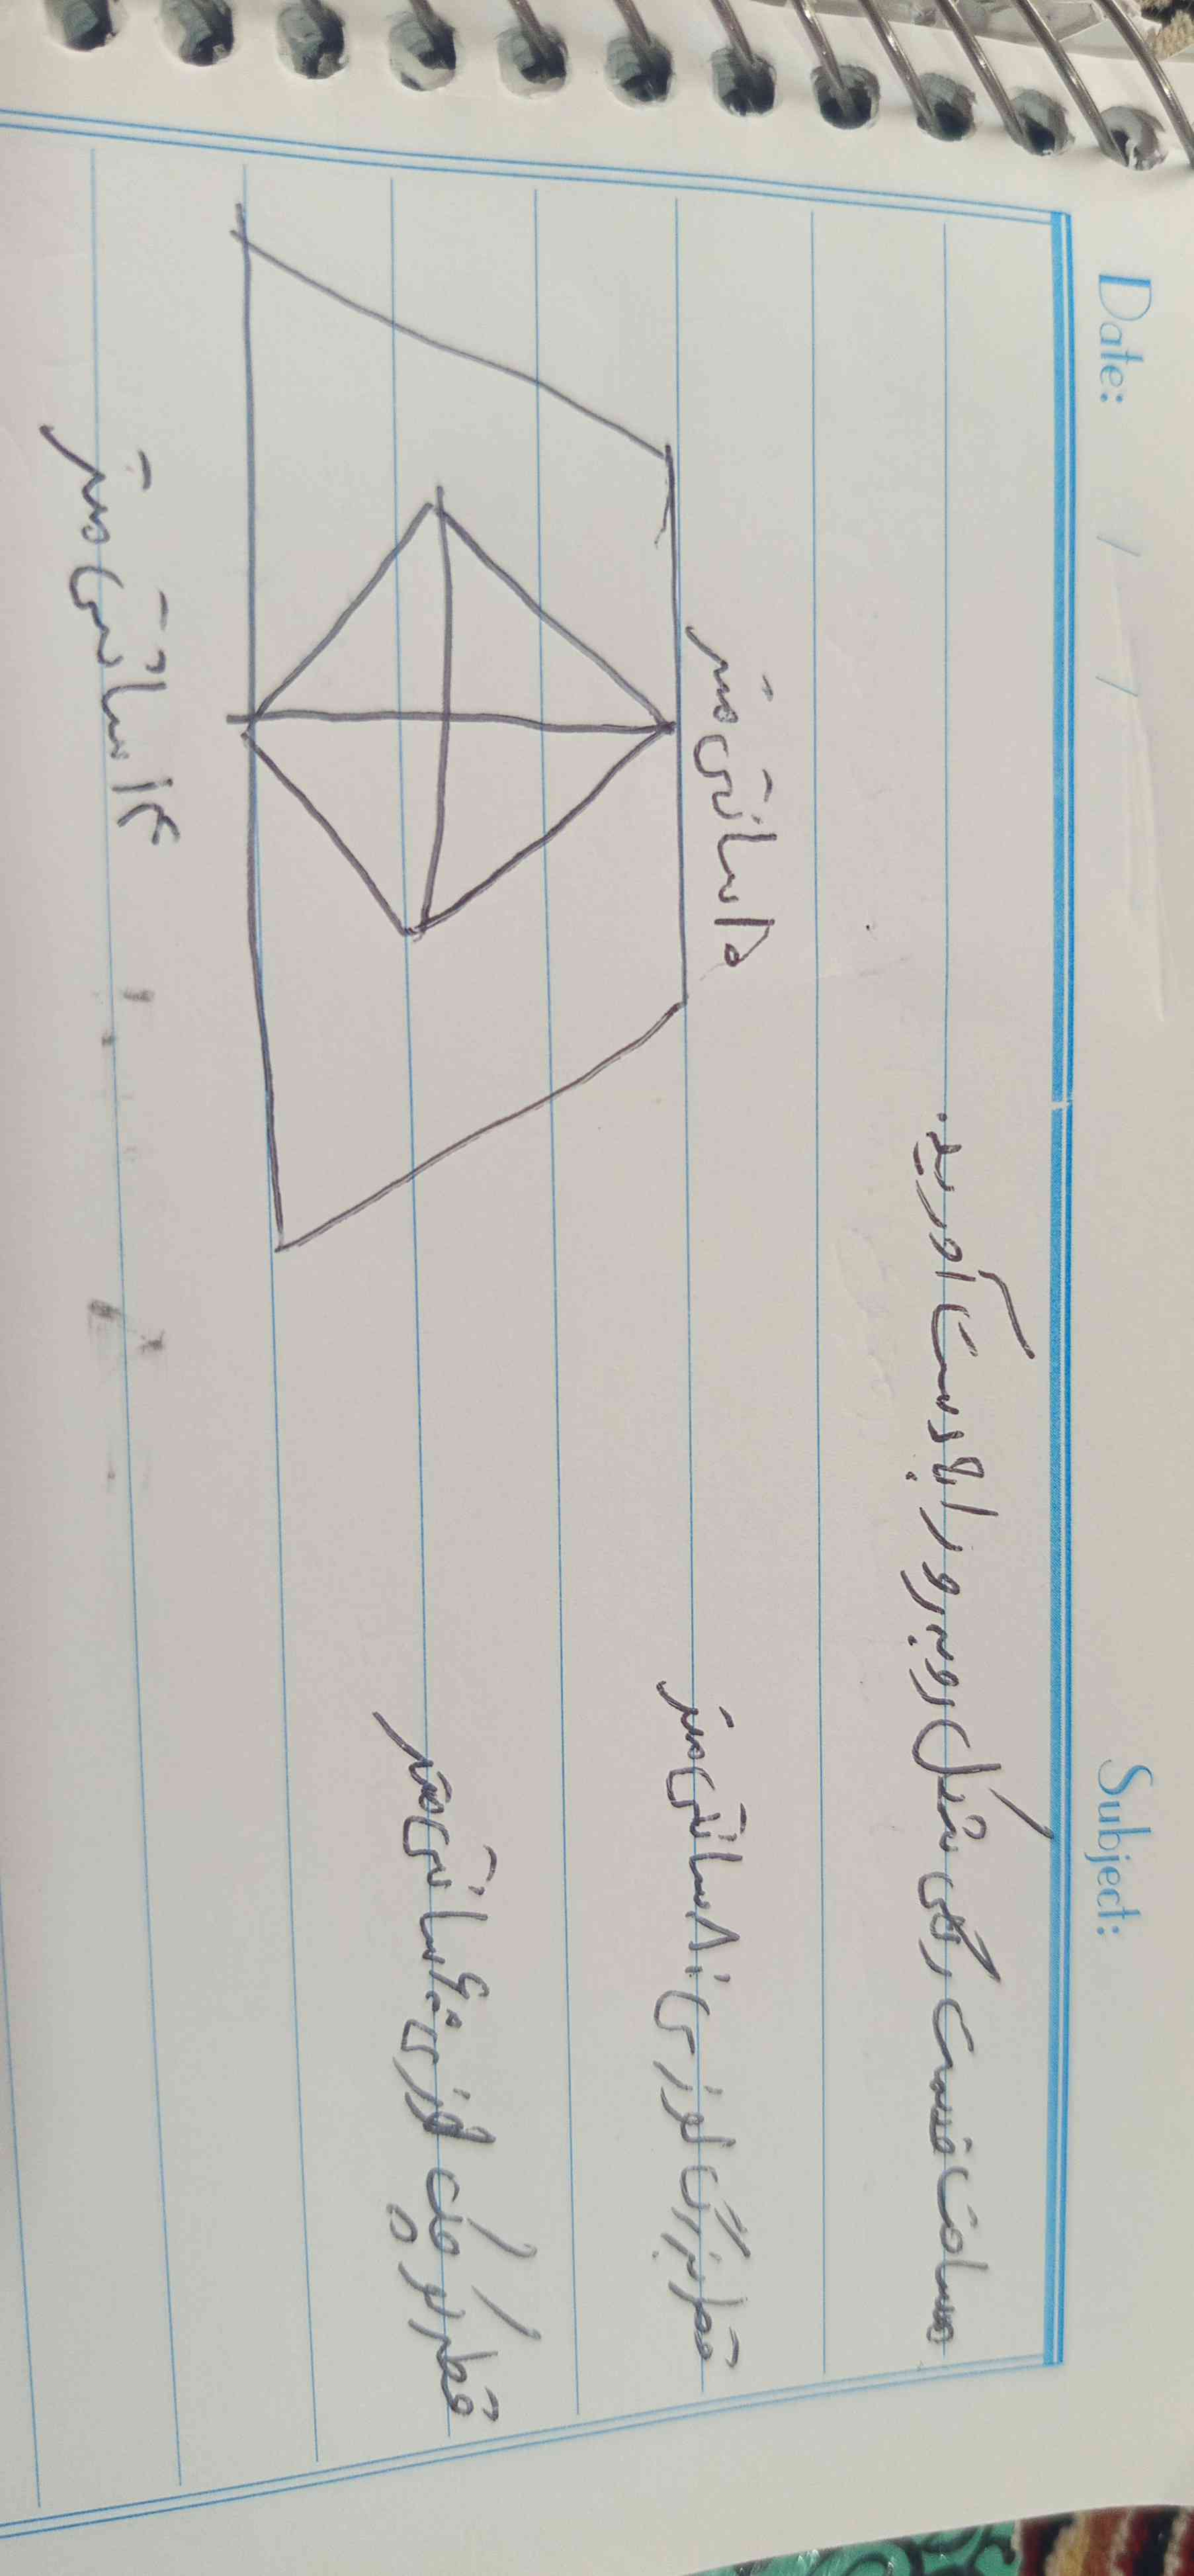 Date: / / Subject:
مساحت قسمت رنگی شکل روبرو را بدست آورید.
سانتی متر
قطر بزرگ لوزی : ۸ سانتی متر
قطر کوچک لوزی : ۶ سانتی متر
سانتی متر